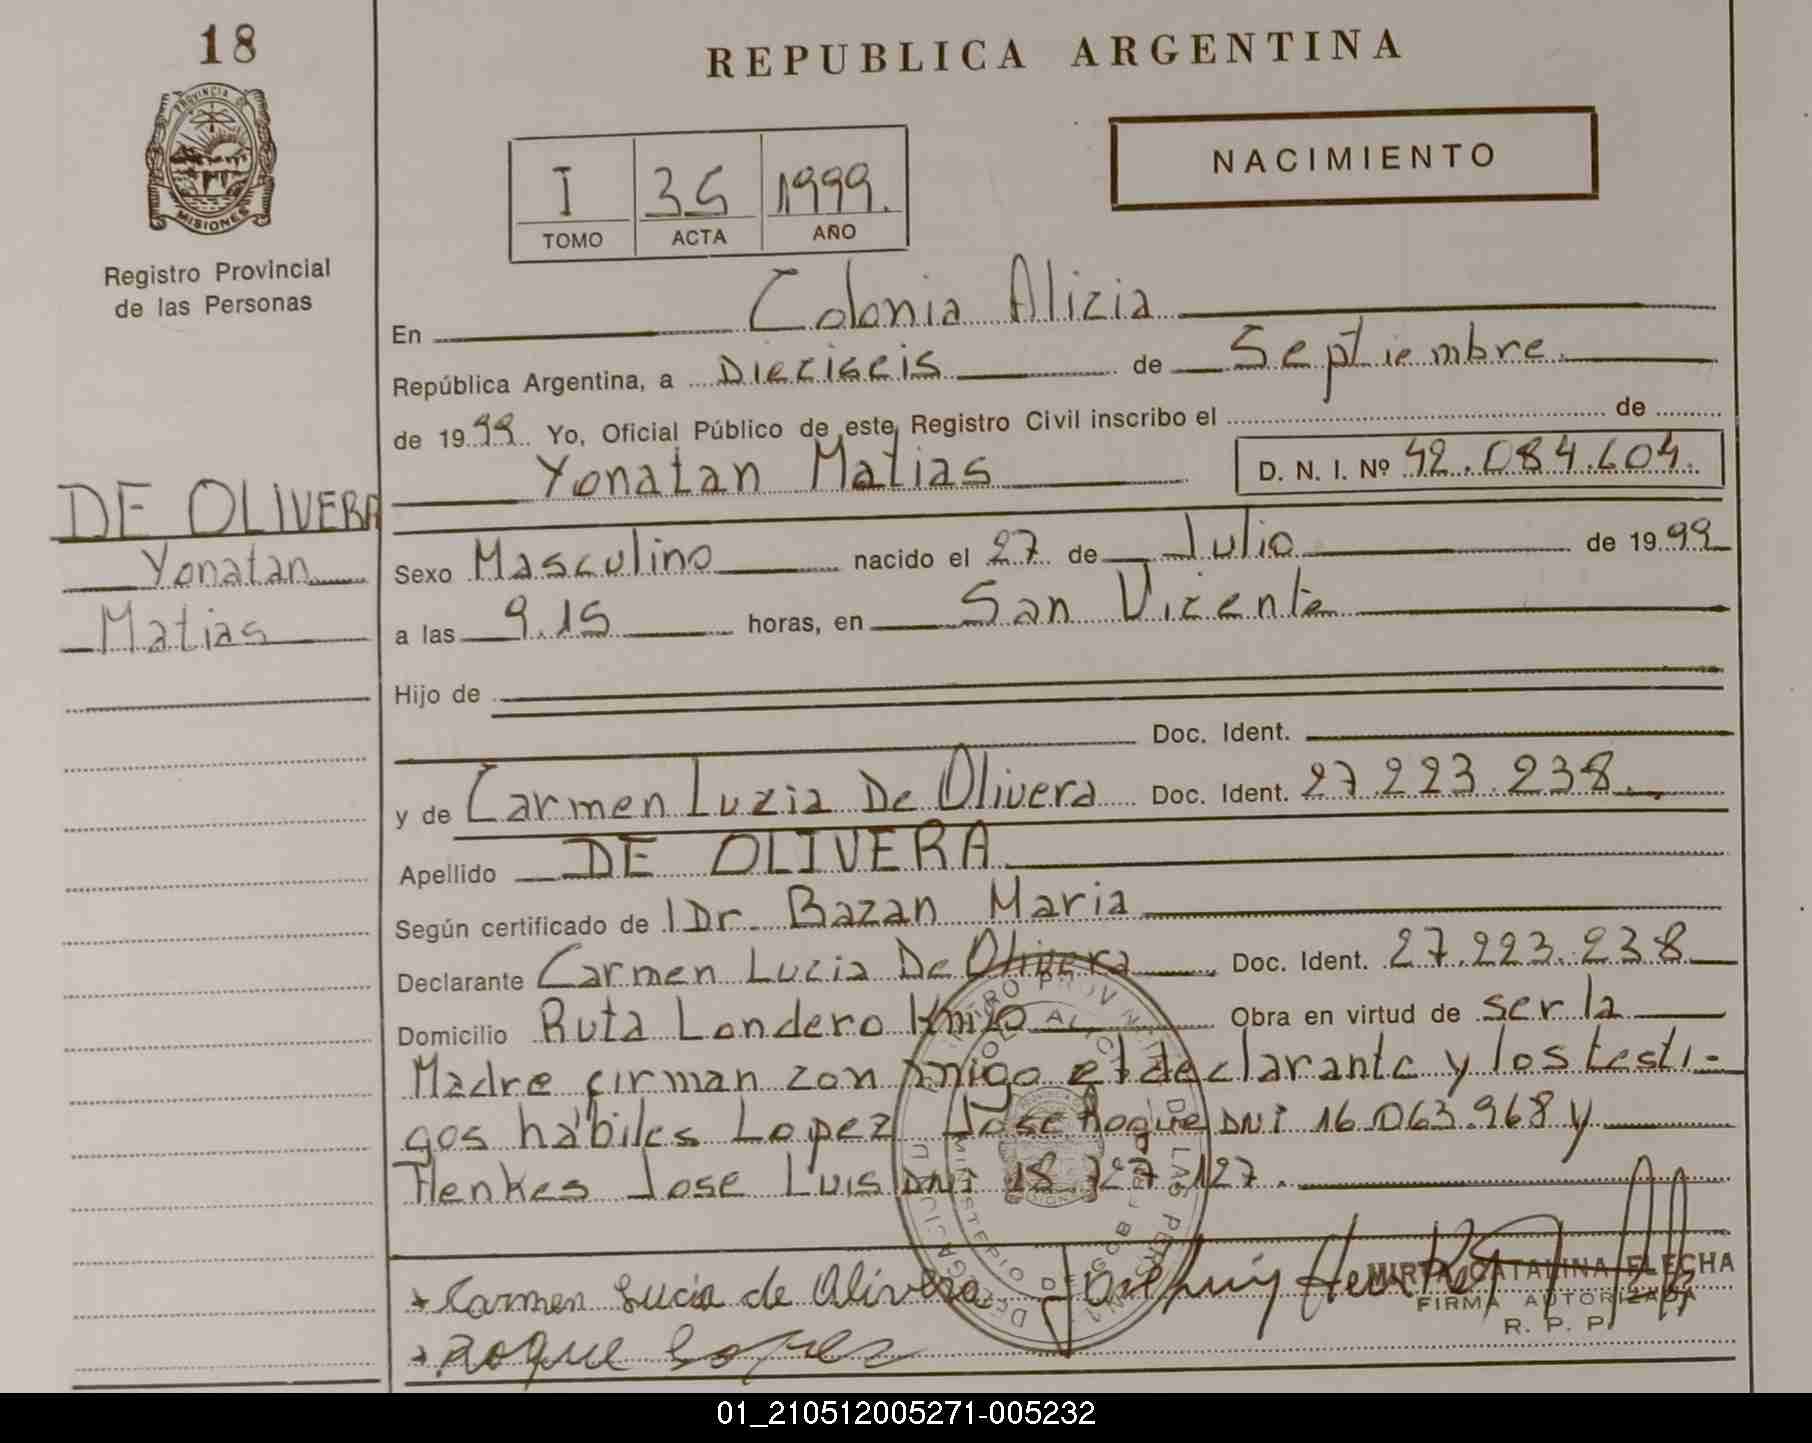 18
REPUBLICA ARGENTINA
PROVINCIA DE
MISIONES
Registro Provincial
de las Personas
NACIMIENTO
I 35 1999.
TOMO ACTA AÑO
En Colonia Alicia
República Argentina, a Dieciseis de Septiembre.
de 1999 Yo, Oficial Público de este Registro Civil inscribo el de
Yonatan Matias D. N. I. Nº 42.084.604.
DE OLIVERA
Yonatan
Matias
Sexo Masculino nacido el 27 de Julio de 1999
a las 9.15 horas, en San Vicente
Hijo de
Doc. Ident.
y de Carmen Lucia De Olivera Doc. Ident. 27.223.238.
Apellido DE OLIVERA
Según certificado de Dr. Bazan Maria
Declarante Carmen Lucia De Olivera Doc. Ident. 27.223.238
Domicilio Ruta Londero Km 20 Obra en virtud de ser la
Madre firman con migo el declarante y los testi-
gos hábiles Lopez Jose Roque DNI 16.063.968 y
Henkes Jose Luis DNI 18.727.127.
Carmen Lucia de Olivera
MIRTA CATALINA FLECHA
FIRMA AUTORIZADA
R. P. P.
Roque Lopez
01_210512005271-005232